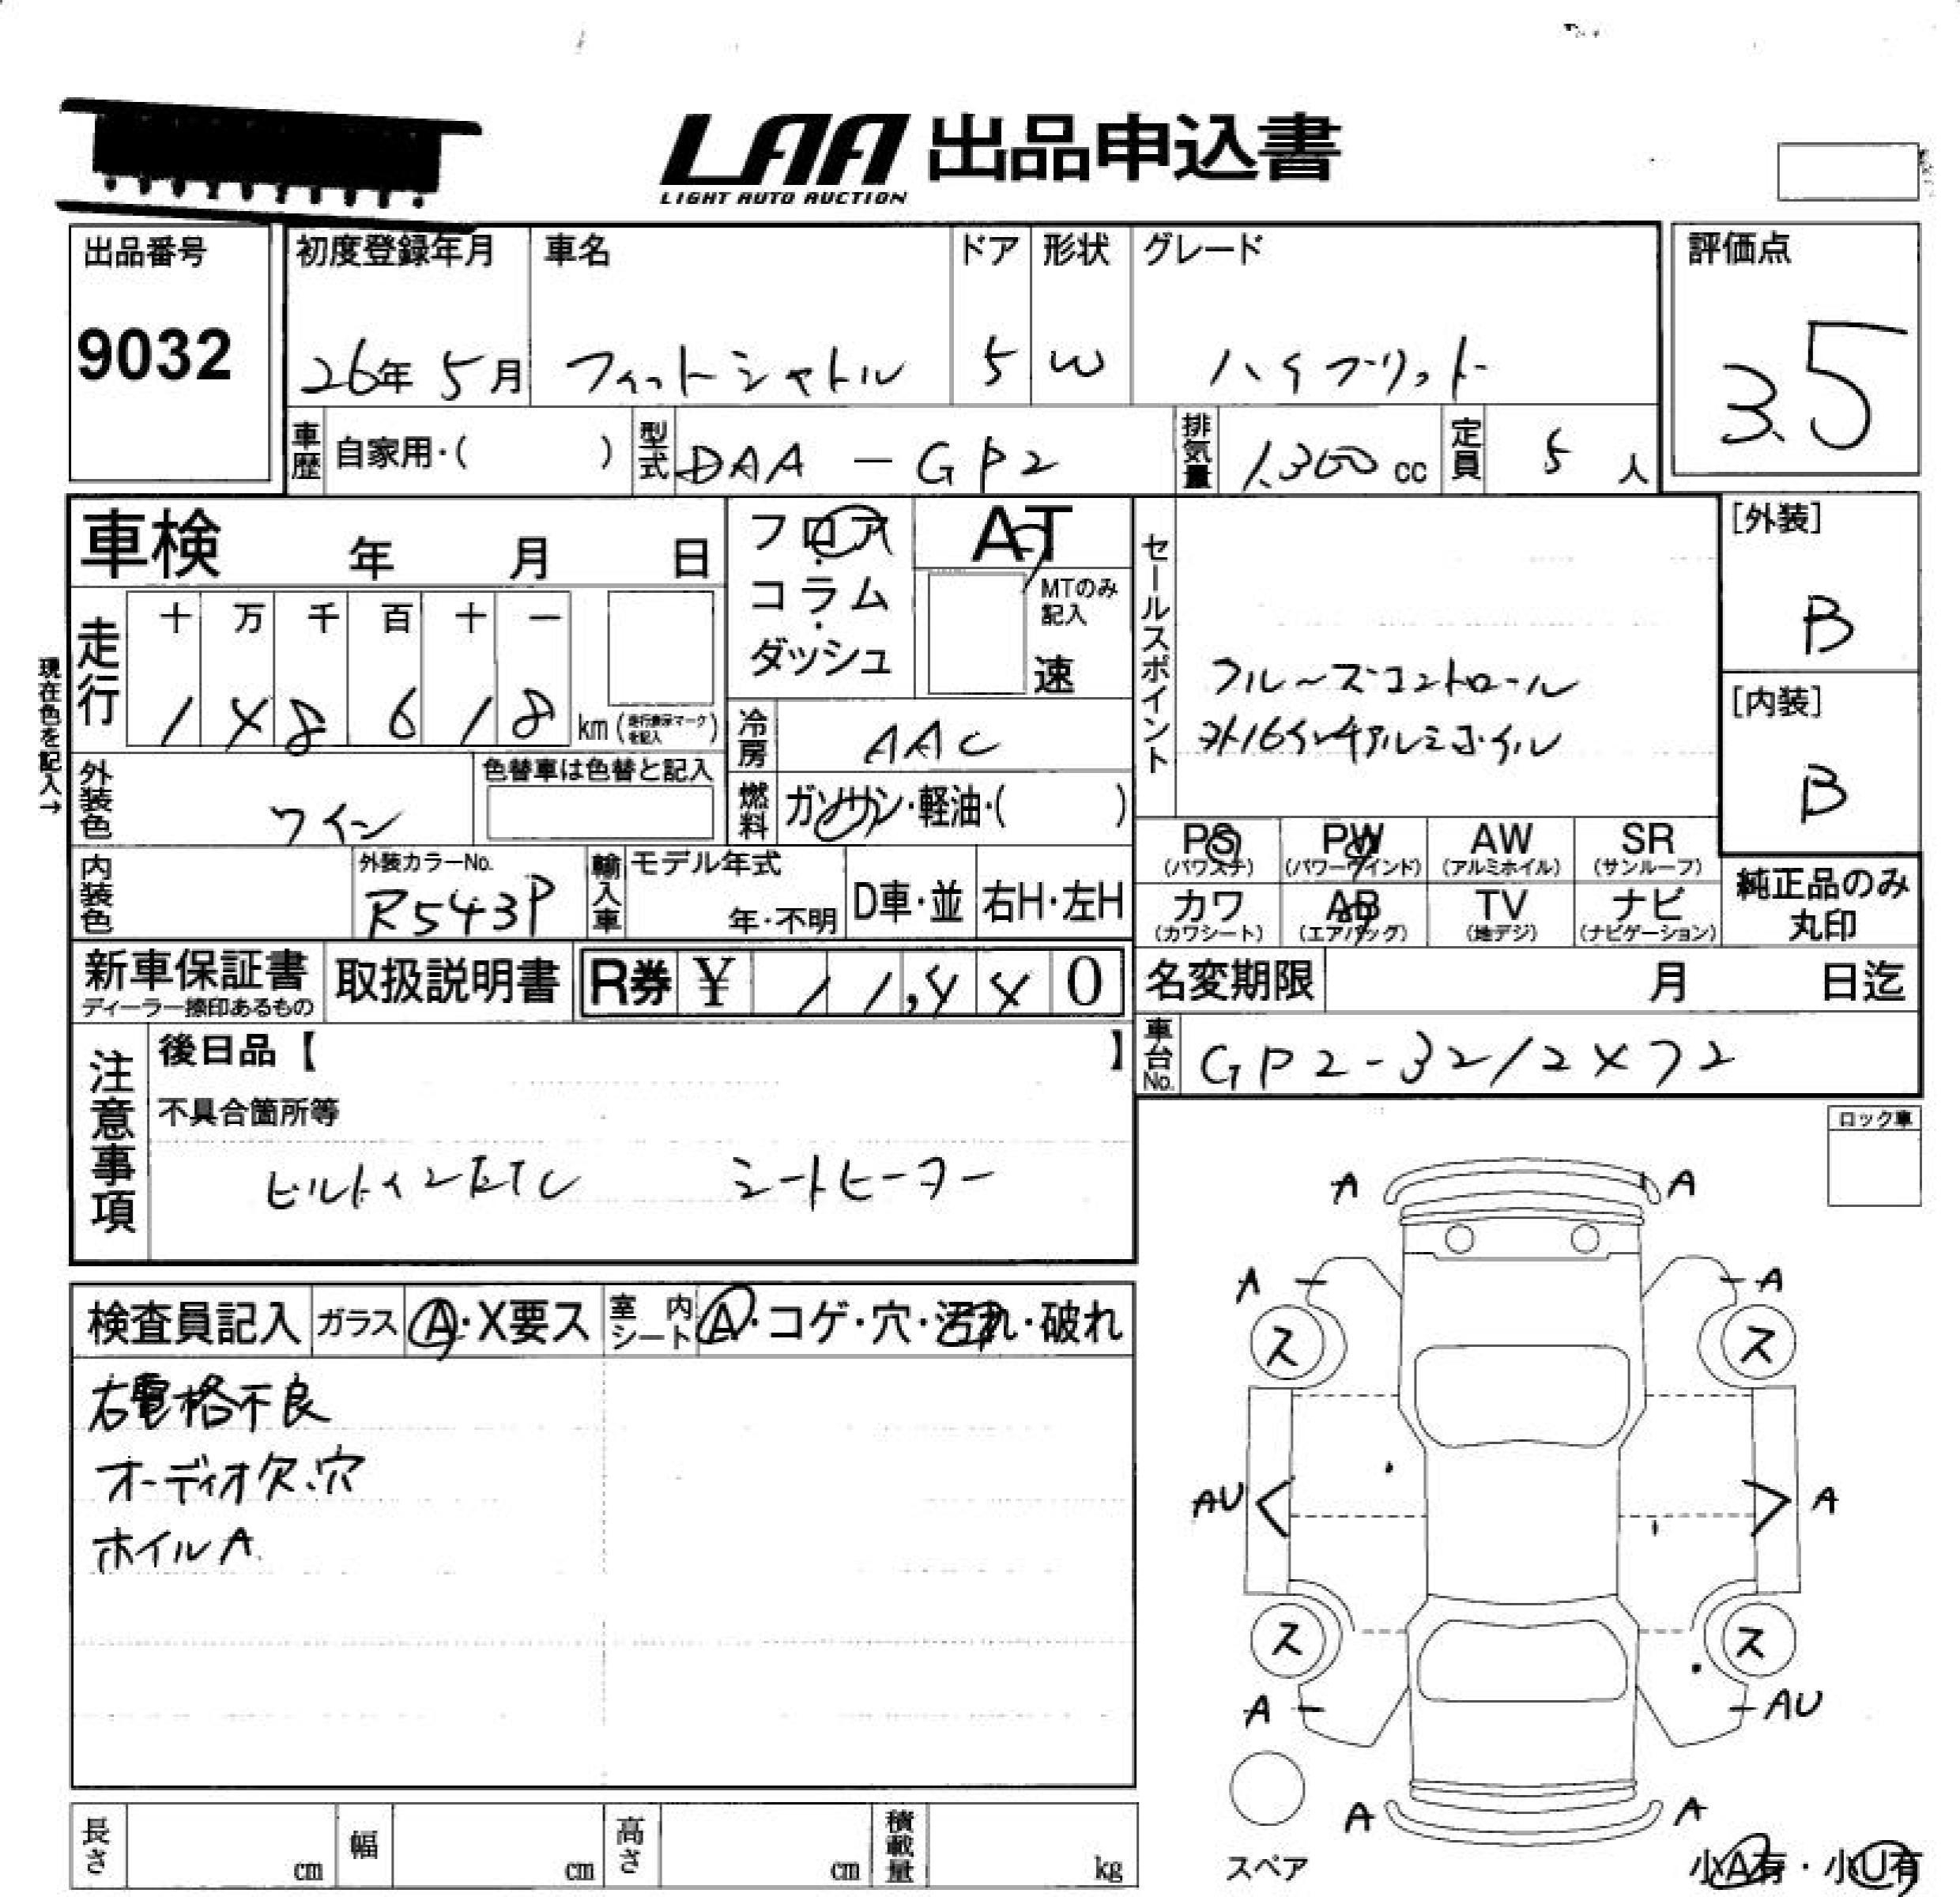 LAA 出品申込書
LIGHT AUTO AUCTION
出品番号 初度登録年月 車名 ドア 形状 グレード 評価点
9032 26年 5月 フィットシャトル 5 W ハイブリット 3.5
車歴 自家用・( ) 型式 DAA-GP2 排気量 1,300 cc 定員 5 人
車検 年 月 日 フロア・コラム・ダッシュ AT
MTのみ記入 速
セールスポイント
[外装]
B
走行 十 万 千 百 十 一
km
現在色を記入→
クルーズコントロール
16インチアルミホイル
[内装]
B
冷房 AAC
外装色 ワイン 色替車は色替と記入
燃料 ガソリン・軽油・( )
PS (パワステ) PW (パワーウインド) AW (アルミホイル) SR (サンルーフ)
カワ (カワシート) AB (エアバッグ) TV (地デジ) ナビ (ナビゲーション)
純正品のみ丸印
内装色 外装カラーNo. R543P 輸入車 モデル年式 年・不明 D車・並 右H・左H
新車保証書 ディーラー捺印あるもの 取扱説明書 R券 ¥ 0
名変期限 月 日迄
車台No.
注意事項 後日品【 】
不具合箇所等
ビルトインETC シートヒーター
ロック車
検査員記入 ガラス A・X要ス 室内シート A・コゲ・穴・汚れ・破れ
右電格不良
オーディオ欠.穴
ホイルA
A A
A A
ス ス
AU A
ス ス
A AU
A A
スペア
小A有・小U有
長さ cm 幅 cm 高さ cm 積載量 kg